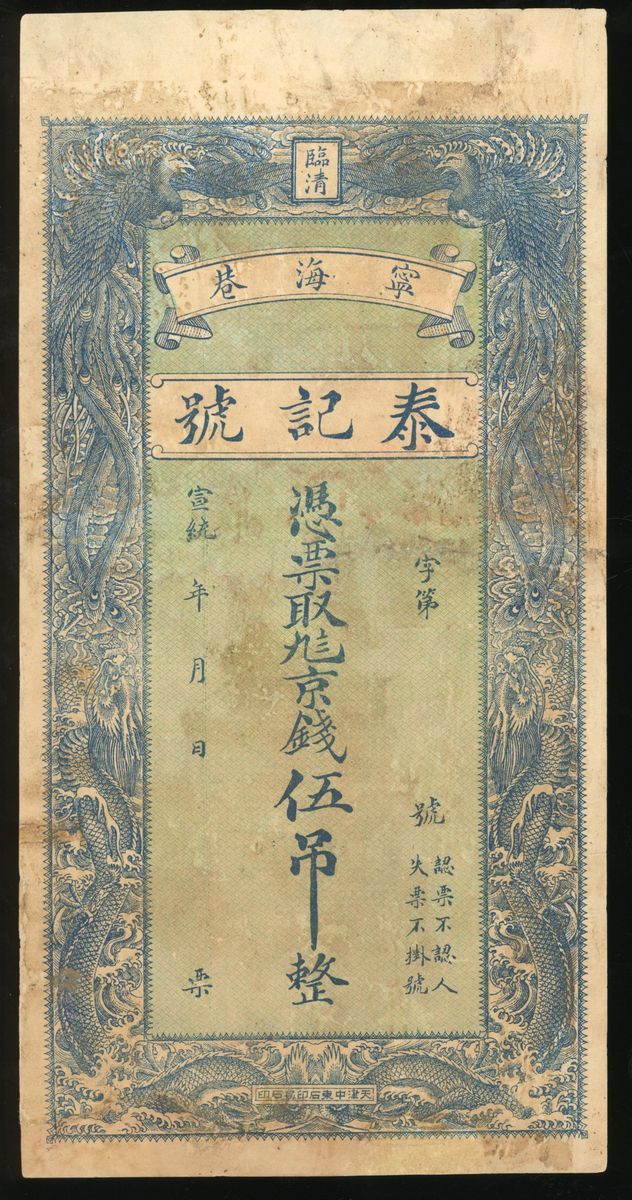 臨清
寧海巷
泰記號
字第 號
認票不認人
失票不掛號
憑票取九 京錢伍吊整
宣統 年 月 日 票
天津中東石印局石印